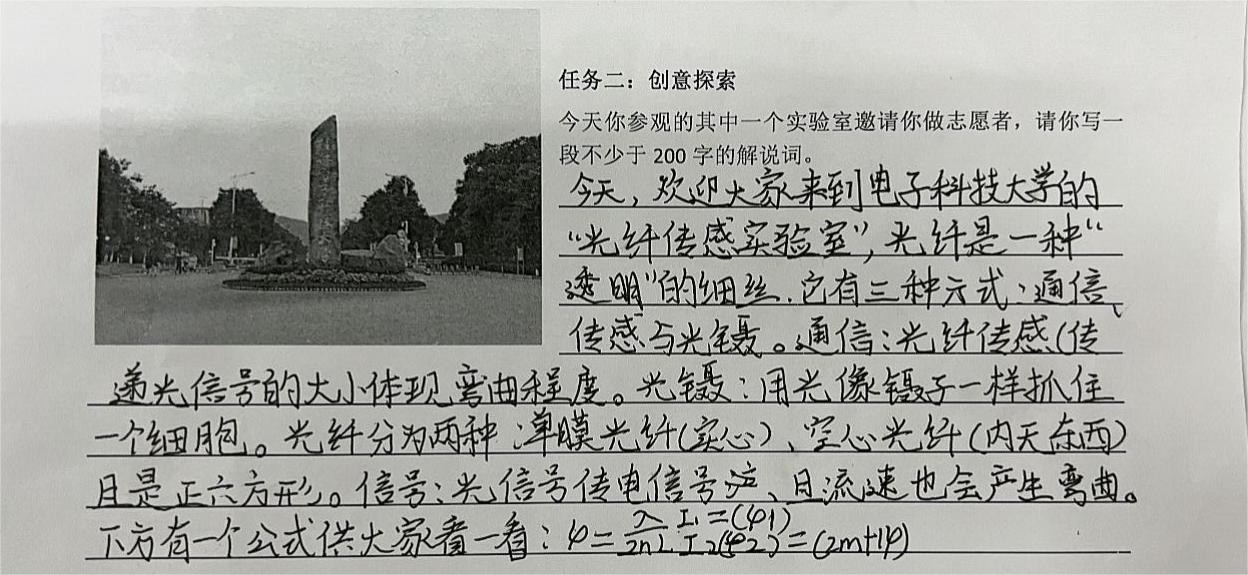 任务二：创意探索
今天你参观的其中一个实验室邀请你做志愿者，请你写一
段不少于 200 字的解说词。
今天，欢迎大家来到电子科技大学的
“光纤传感实验室”，光纤是一种“
透明”的细丝.它有三种方式：通信、
传感与光镊。通信：光纤传感(传
递光信号的大小体现弯曲程度。光镊：用光像镊子一样抓住
一个细胞。光纤分为两种：单膜光纤(实心)、空心光纤(内无东西)
且是正六方形。信号：光信号传电信号 、且流速也会产生弯曲。
下方有一个公式供大家看一看：φ=λ/2nL I₁=(φ1) I₂(φ2)=(2m+1φ)